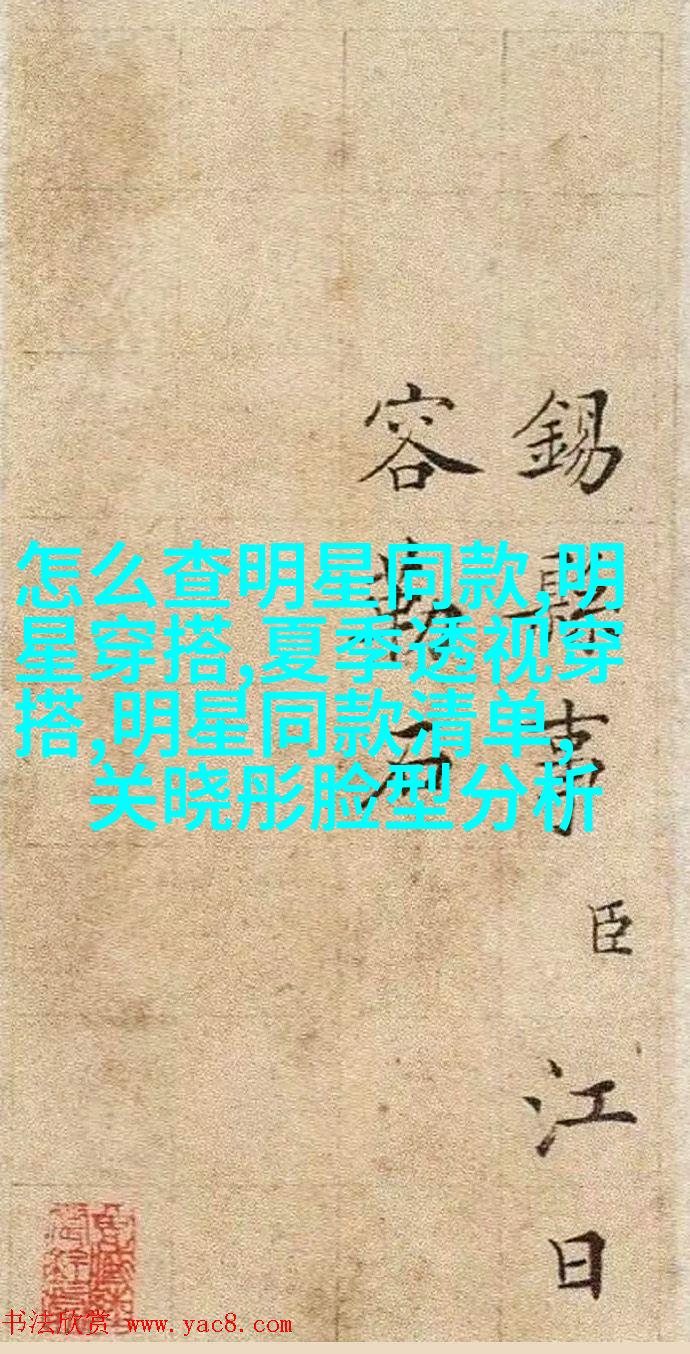 怎么查明星同款,明
星穿搭,夏季透视穿
搭,明星同款清单,
关晓彤脸型分析
錫縣事臣江日
容
书法欣赏 www.yac8.com